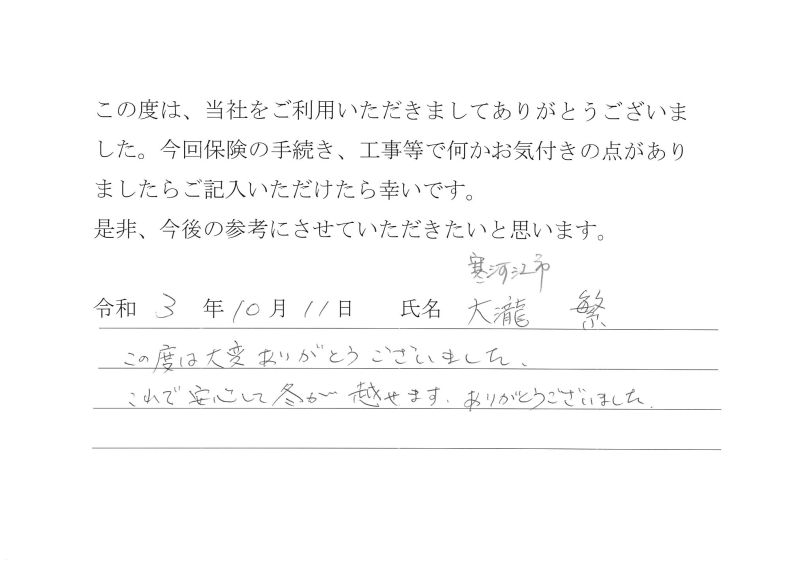 この度は、当社をご利用いただきましてありがとうございま
した。今回保険の手続き、工事等で何かお気付きの点があり
ましたらご記入いただけたら幸いです。
是非、今後の参考にさせていただきたいと思います。
寒河江市
令和 3 年 10 月 11 日 氏名 大瀧 繁
この度は大変ありがとうございました。
これで安心して冬が越せます。ありがとうございました。